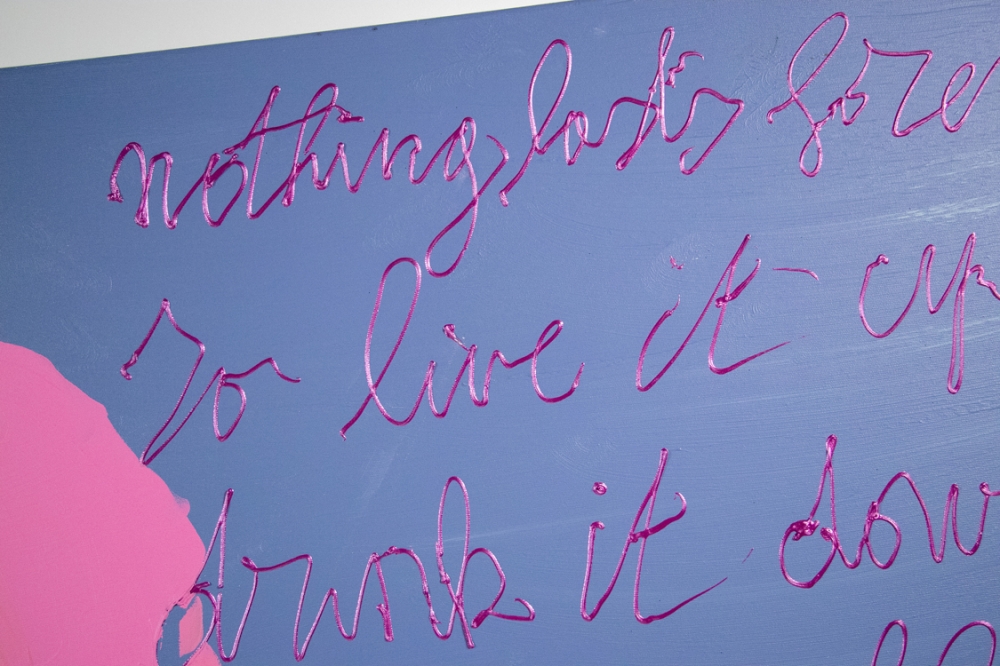 nothing lasts fore
So live it up
drink it dow